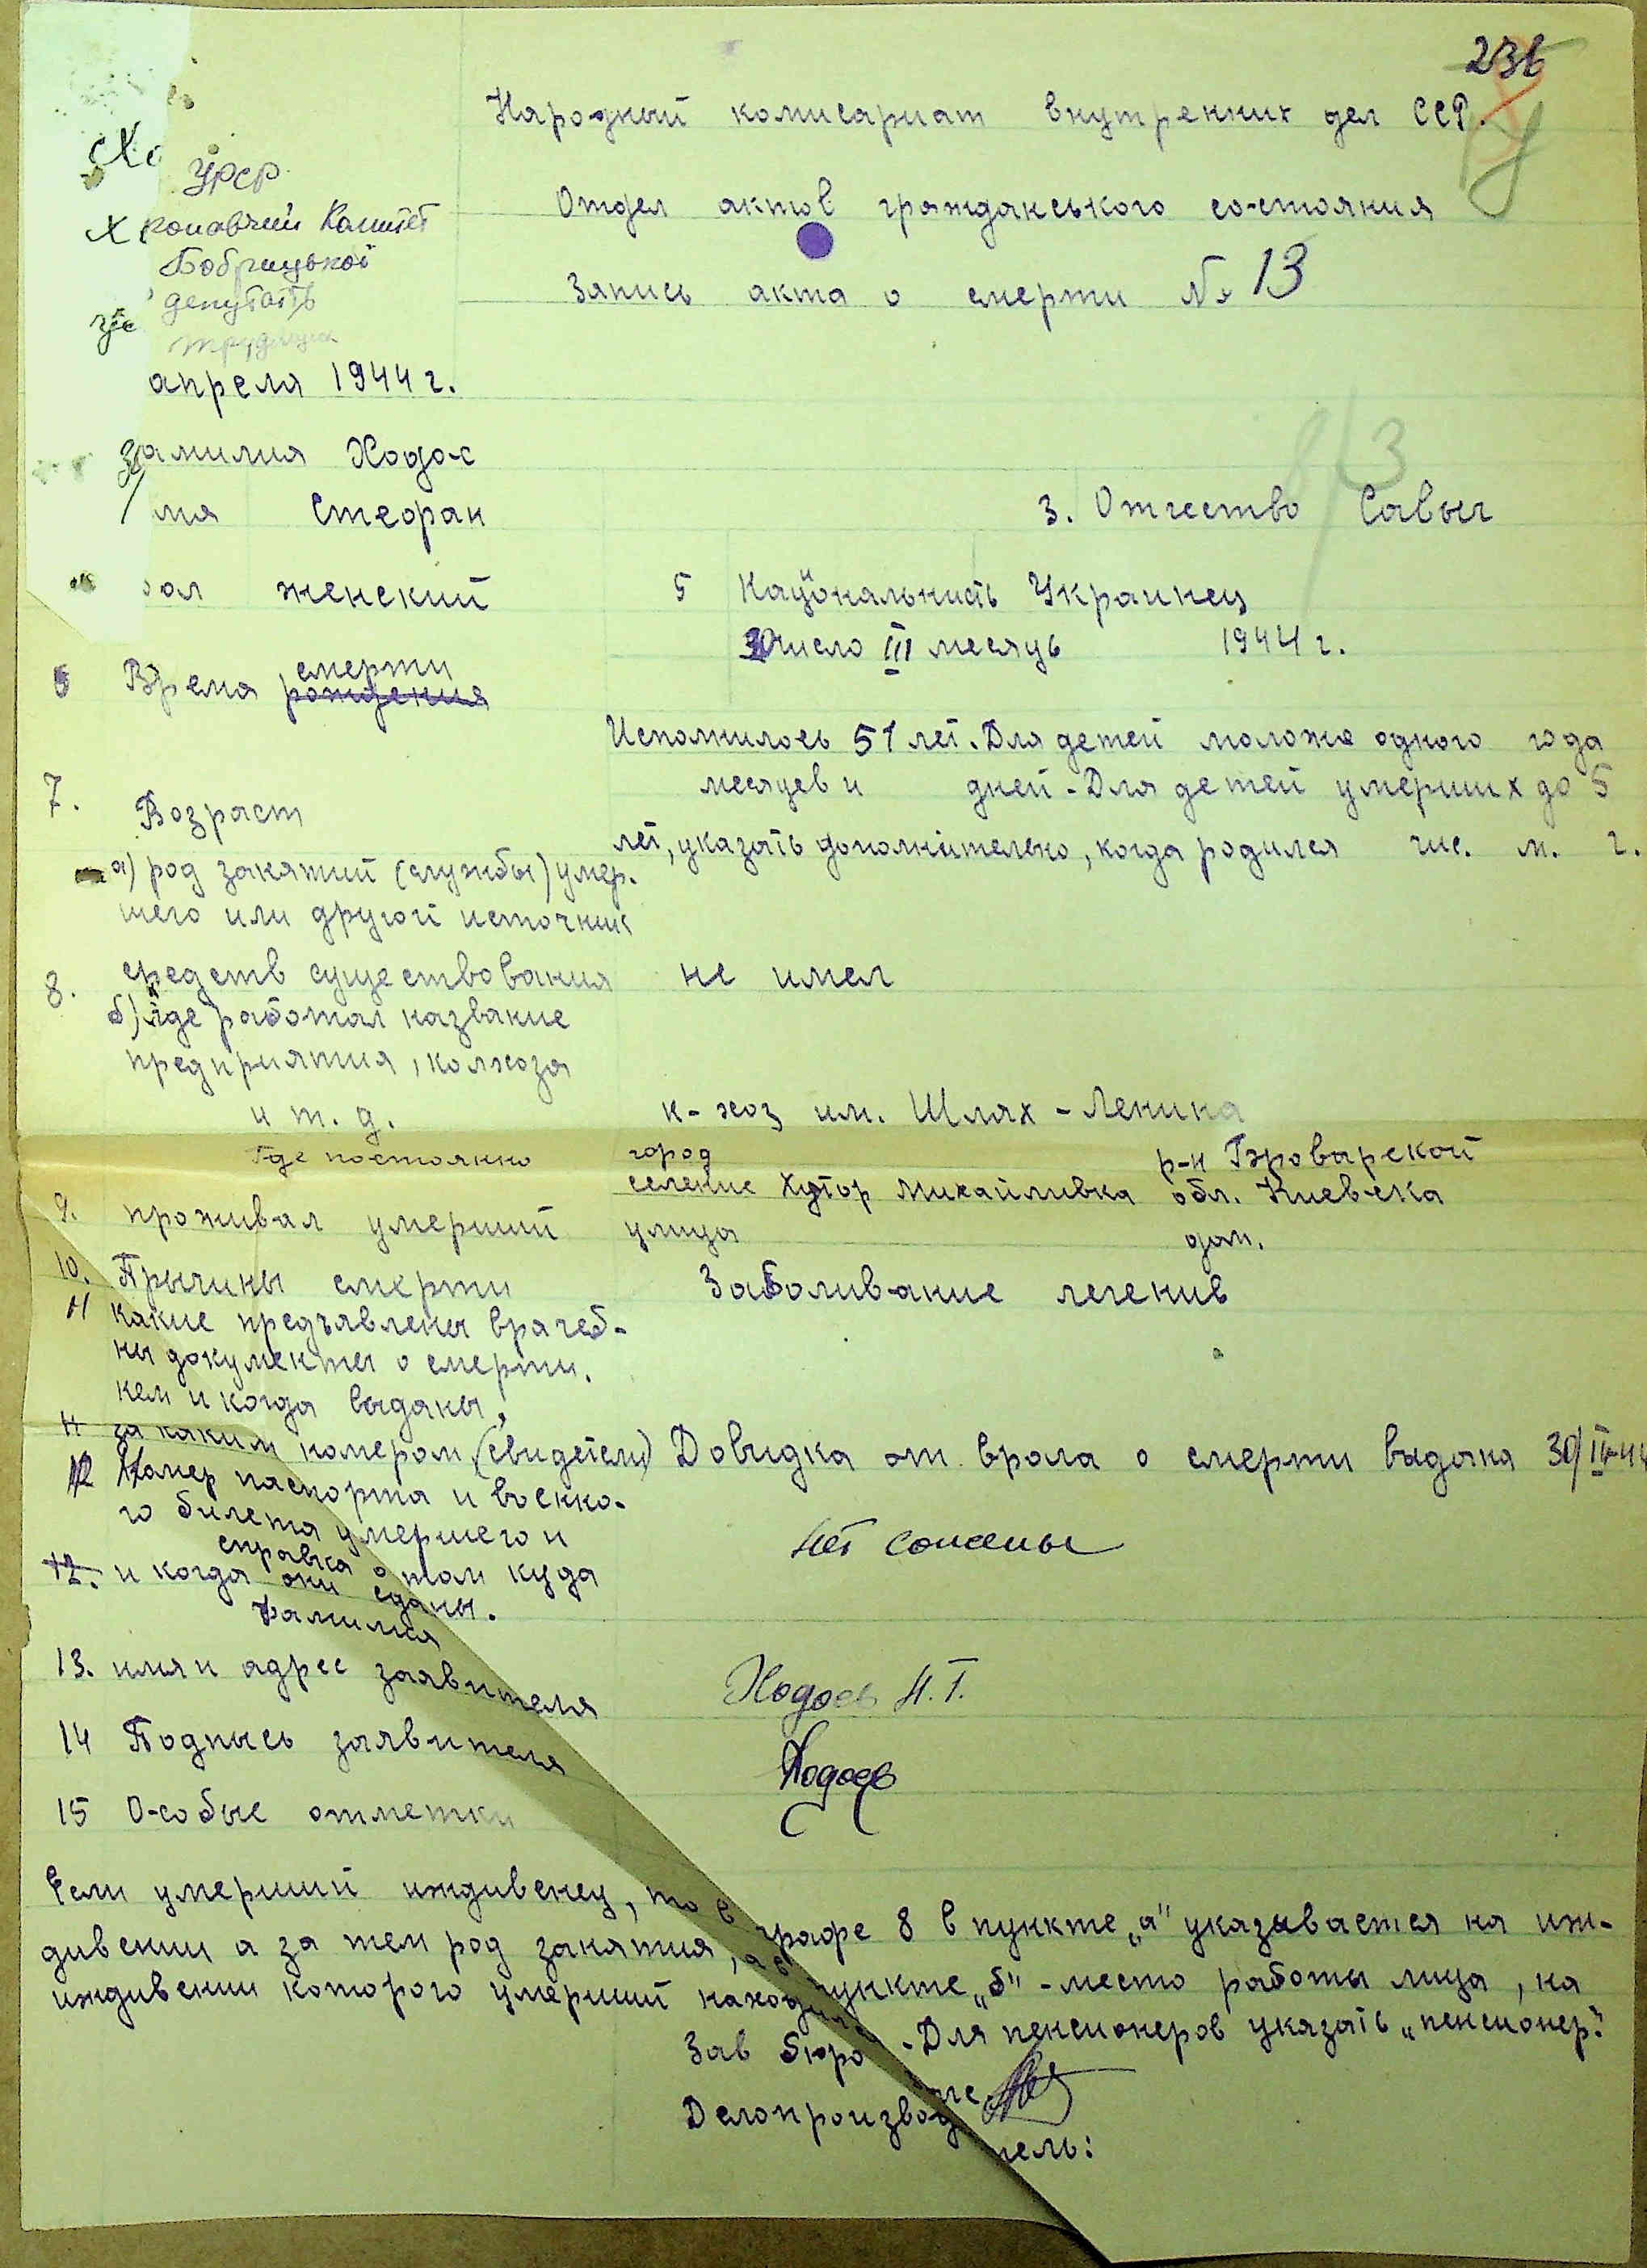 236
Народный комисариат внутренних дел ССР.
УРСР
Отдел актов гражданського состояния
конавчий Комітет
Бобрицької
депутатів
Запись акта о смерти № 13
трудящих
апреля 1944 г.
8/3
амилия Ходос
мя Стефан
3. Отчество Савыч
ол женский
5 Національність Украинец
30 число III месяць 1944 г.
6 Время рождения смерти
Исполнилось 51 лет. Для детей моложе одного года
месяцев и дней - Для детей умерших до 5
лет, указать дополнительно, когда родился чис. м. г.
7. Возраст
а) род занятий (службы) умер-
шего или другой источник
8. средств существования не имел
б) где работал название
предприятия, колхоза
и т. д. к-хоз им. Шлях - Ленина
Где постоянно
город р-н Броварской
селение Хутор Михайливка обл. Киевска
9. проживал умерший улица дом.
10. Прычины смерти Заболивание легенив
11 какие предъявлены врачеб-
ны документы о смерти.
кем и когда выданы,
11 за каким номером (свидетели) Довидка от врача о смерти выдана 30/III-44
12 Номер паспорта и военно-
го билета умершего и
справка о том куда
нет
12. и когда они сданы.
Фамилия
13. имя и адрес заявителя Ходось Н. Т.
14 Подпысь заявителя Ходось
15 Особые отметки
Если умерший иждивенец, то в графе 8 в пункте „а" указывается на иж-
дивении а за тем род занятия, а в пункте „б" - место работы лица, на
иждивении которого умерший находился - Для пенсионеров указать „пенсионер."
Зав бюро
Делопроизводитель: